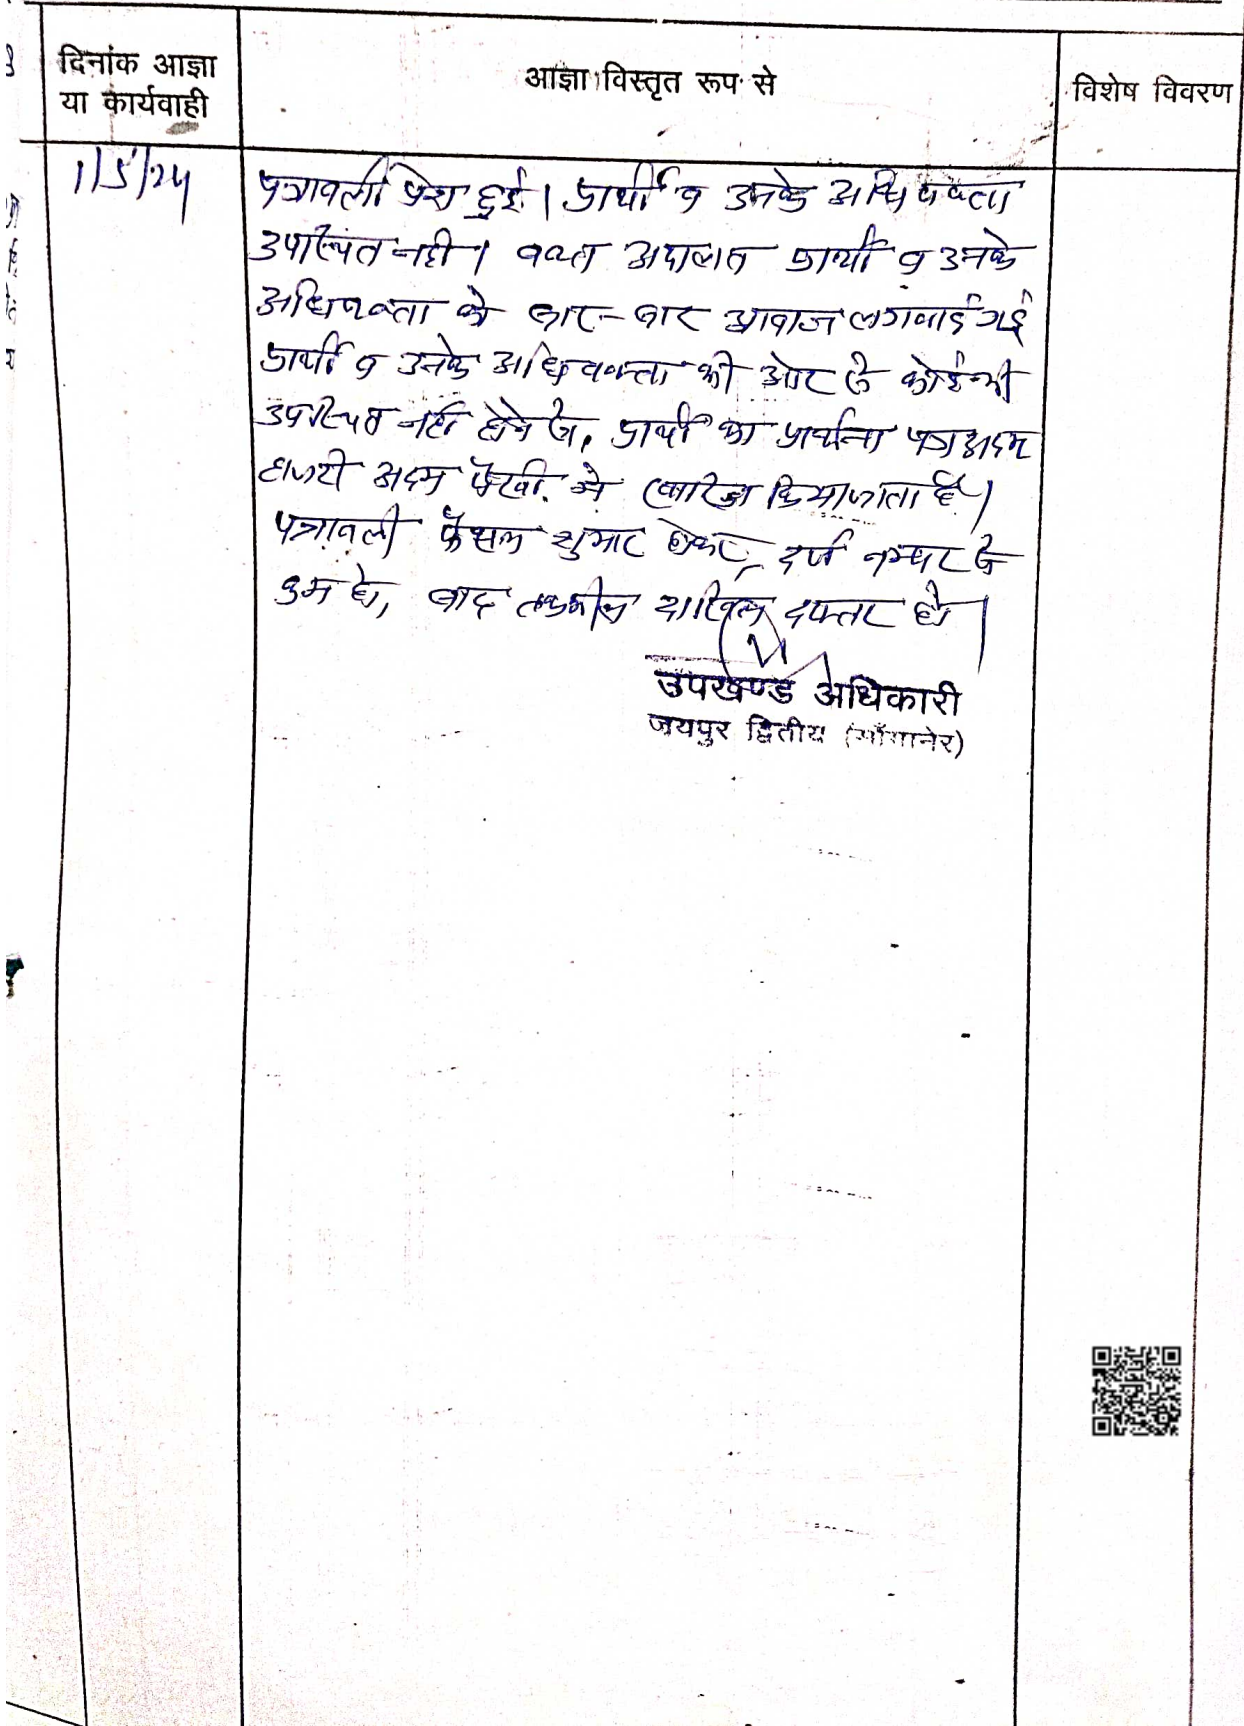 दिनांक आज्ञा
या कार्यवाही
आज्ञा विस्तृत रूप से
विशेष विवरण
1/5/24
पत्रावली पेश हुई। प्रार्थी व उनके अधिवक्ता
उपस्थित नही। वक्त अदालत प्रार्थी व उनके
अधिवक्ता को बार-बार आवाज लगवाई गई
प्रार्थी व उनके अधिवक्ता की ओर से कोई भी
उपस्थित नहीं होने से, प्रार्थी का प्रार्थना पत्र अदम
हाजरी अदम पैरवी में खारिज किया जाता है।
पत्रावली फैसल शुमार होकर, दर्ज नम्बर से
कम हो, बाद तकमील दाखिल दफ्तर हो।
उपखण्ड अधिकारी
जयपुर द्वितीय (साँगानेर)